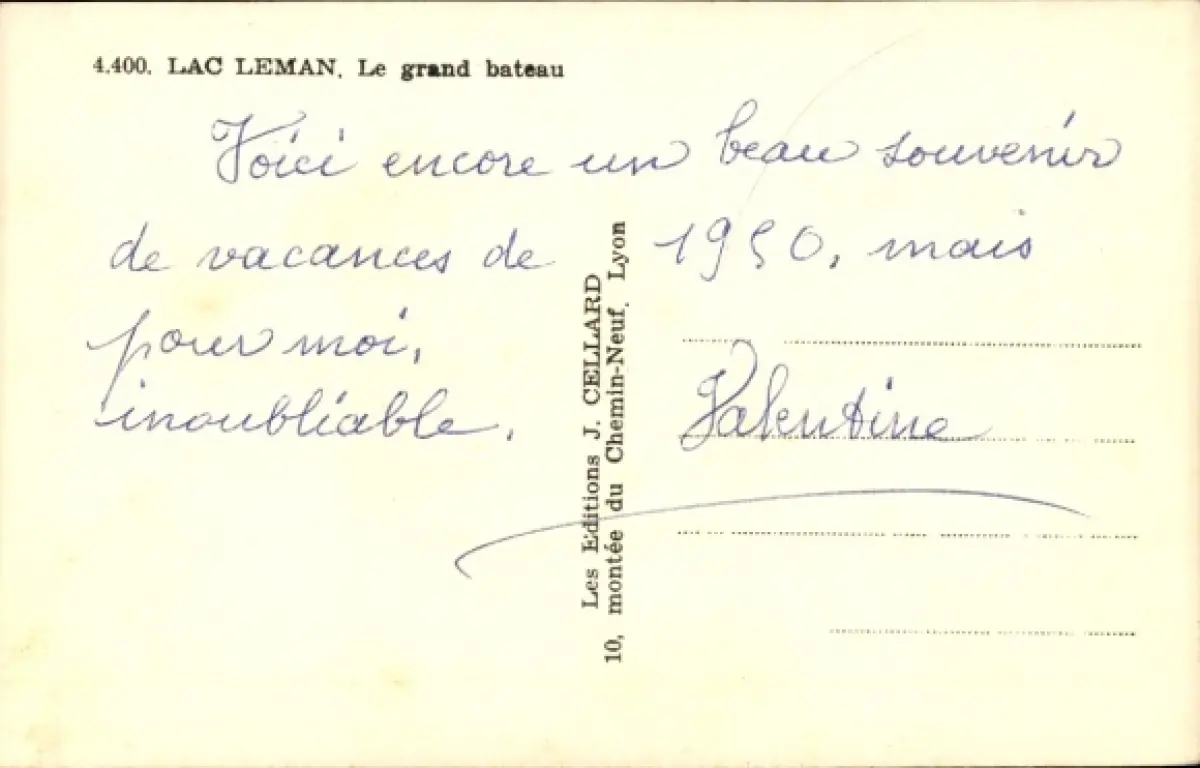 4.400. LAC LEMAN. Le grand bateau
Voici encore un beau souvenir
de vacances de 1950, mais
pour moi,
inoubliable.
Valentine
Les Editions J. CELLARD
10, montée du Chemin-Neuf. Lyon